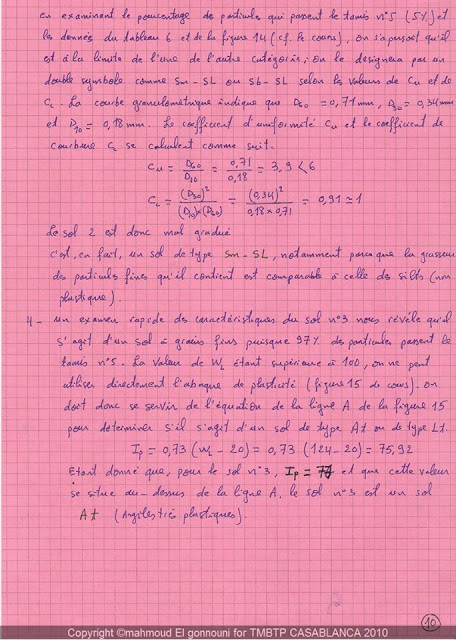 en examinant le pourcentage de particules qui passent le tamis n°5 (5%) et
les données du tableau 6 et de la figure 14 (cf. le cours), on s'aperçoit qu'il
est à la limite de l'une de l'autre catégories ; on le désignera par un
double symbole comme Sm-SL ou Sb-SL selon les valeurs de Cu et de
Cc. La courbe granulométrique indique que D60 = 0,71 mm, D30 = 0,34 mm
et D10 = 0,18 mm. Le coefficient d'uniformité Cu et le coefficient de
courbure Cc se calculent comme suit.
Cu = D60/D10 = 0,71/0,18 = 3,9 < 6
Cc = (D30)²/(D10)×(D60) = (0,34)²/0,18×0,71 = 0,91 ≃ 1
Le sol 2 est donc mal gradué
c'est, en fait, un sol de type Sm-SL, notamment parce que la grosseur
des particules fines qu'il contient est comparable à celle des silts (non
plastique).
4 - un examen rapide des caractéristiques du sol n°3 nous révèle qu'il
s'agit d'un sol à grains fins puisque 97% des particules passent le
tamis n°5. La valeur de WL étant supérieure à 100, on ne peut
utiliser directement l'abaque de plasticité (figure 15 de cours). On
doit donc se servir de l'équation de la ligne A de la figure 15
pour déterminer s'il s'agit d'un sol de type At ou de type Lt.
Ip = 0,73 (WL - 20) = 0,73 (124 - 20) = 75,92
Etant donné que, pour le sol n°3, Ip = 77 et que cette valeur
se situe au-dessus de la ligne A, le sol n°3 est un sol
At (Argiles très plastiques).
10
Copyright ©mahmoud El gonnouni for TMBTP CASABLANCA 2010